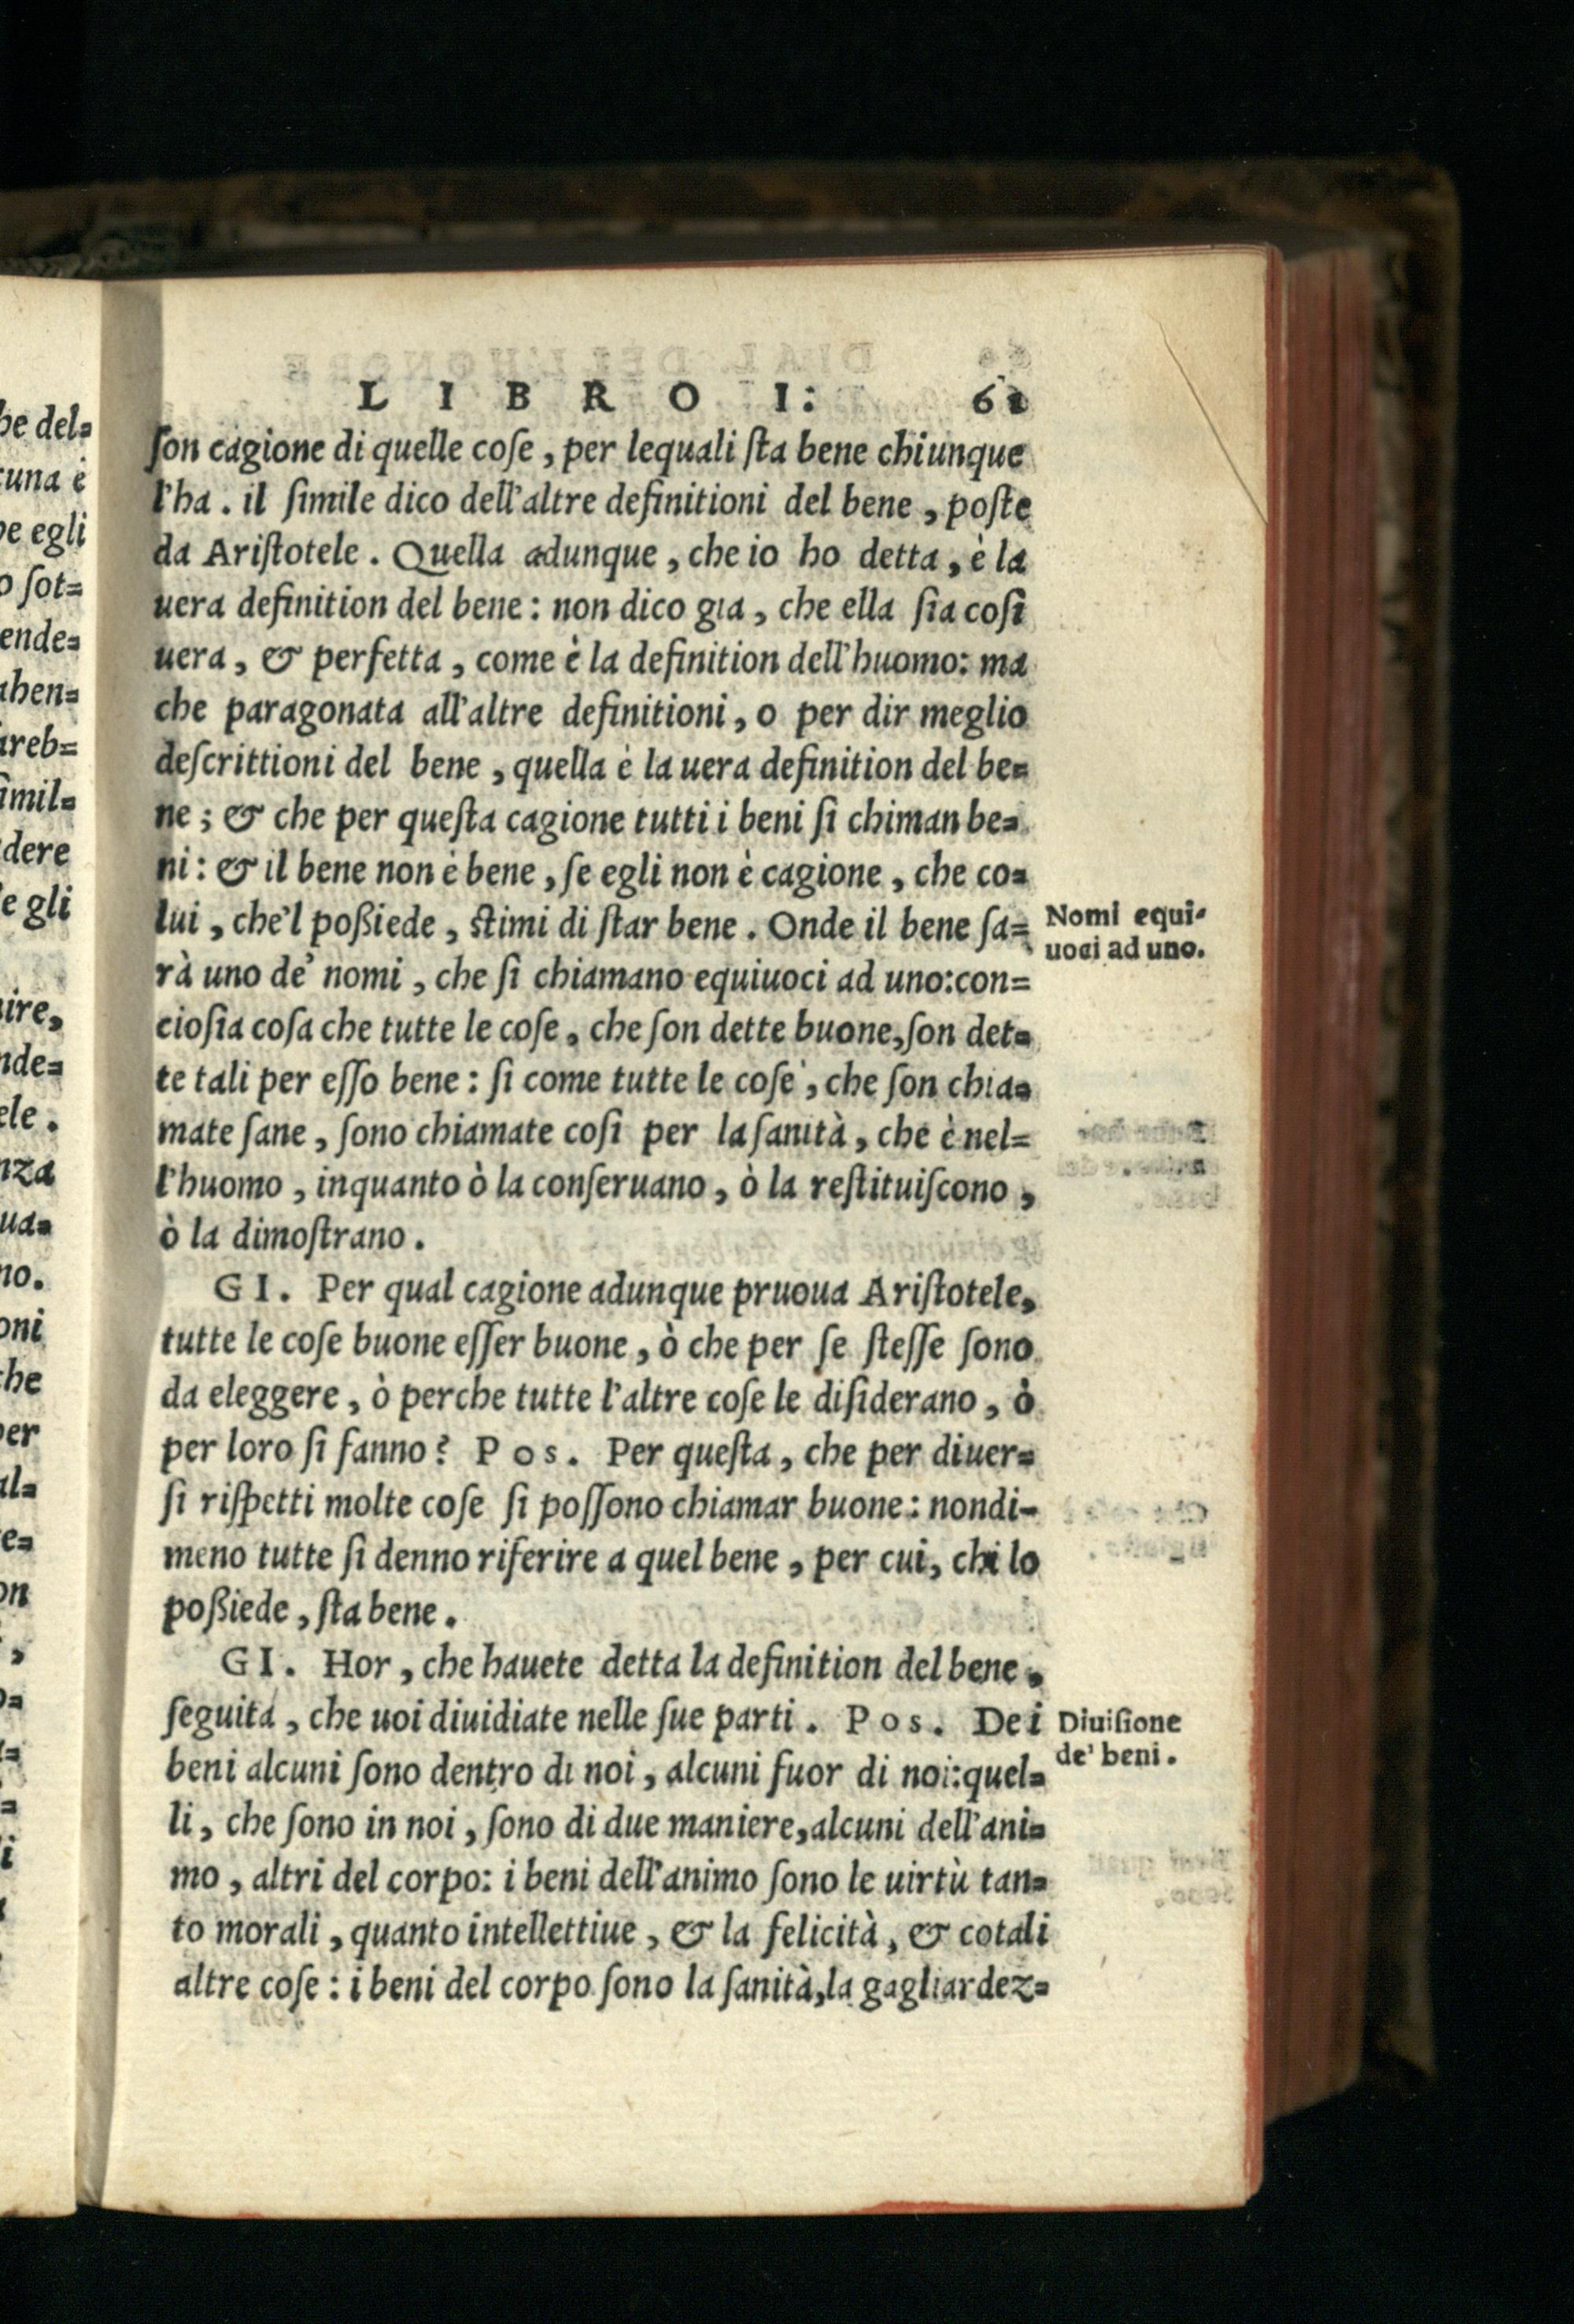 LIBRO I: 61
ſon cagione di quelle coſe, per lequali ſta bene chiunque
l'ha. il ſimile dico dell'altre definitioni del bene, poſte
da Ariſtotele. Quella adunque, che io ho detta, è la
uera definition del bene: non dico gia, che ella ſia coſi
uera, & perfetta, come è la definition dell'huomo: ma
che paragonata all'altre definitioni, o per dir meglio
deſcrittioni del bene, quella è la uera definition del be=
ne; & che per queſta cagione tutti i beni ſi chiman be=
ni: & il bene non è bene, ſe egli non è cagione, che co=
lui, che'l poßiede, ſtimi di ſtar bene. Onde il bene ſa=
Nomi equi-
uoci ad uno.
rà uno de' nomi, che ſi chiamano equiuoci ad uno:con=
cioſia coſa che tutte le coſe, che ſon dette buone,ſon det=
te tali per eſſo bene: ſi come tutte le coſe, che ſon chia=
mate ſane, ſono chiamate coſi per la ſanità, che è nel=
l'huomo, inquanto ò la conſeruano, ò la reſtituiſcono,
ò la dimoſtrano.
GI. Per qual cagione adunque pruoua Ariſtotele,
tutte le coſe buone eſſer buone, ò che per ſe ſteſſe ſono
da eleggere, ò perche tutte l'altre coſe le diſiderano, ò
per loro ſi fanno? Pos. Per queſta, che per diuer=
ſi riſpetti molte coſe ſi poſſono chiamar buone: nondi-
meno tutte ſi denno riferire a quel bene, per cui, chi lo
poßiede, ſta bene.
GI. Hor, che hauete detta la definition del bene,
ſeguita, che uoi diuidiate nelle ſue parti. Pos. Dei
Diuiſione
de' beni.
beni alcuni ſono dentro di noi, alcuni fuor di noi:quel=
li, che ſono in noi, ſono di due maniere,alcuni dell'ani=
mo, altri del corpo: i beni dell'animo ſono le uirtù tan=
to morali, quanto intellettiue, & la felicità, & cotali
altre coſe: i beni del corpo ſono la ſanità,la gagliardez=